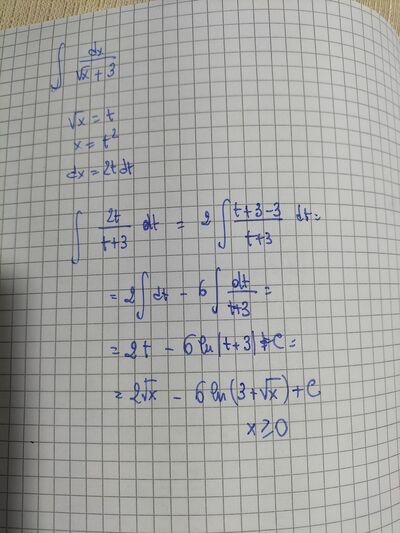 ∫ dx/(√x + 3)
√x = t
x = t²
dx = 2t dt
∫ 2t/(t+3) dt = 2 ∫ (t+3-3)/(t+3) dt =
= 2 ∫ dt - 6 ∫ dt/(t+3) =
= 2t - 6 ln|t+3| + C =
= 2√x - 6 ln(3+√x) + C
x ≥ 0